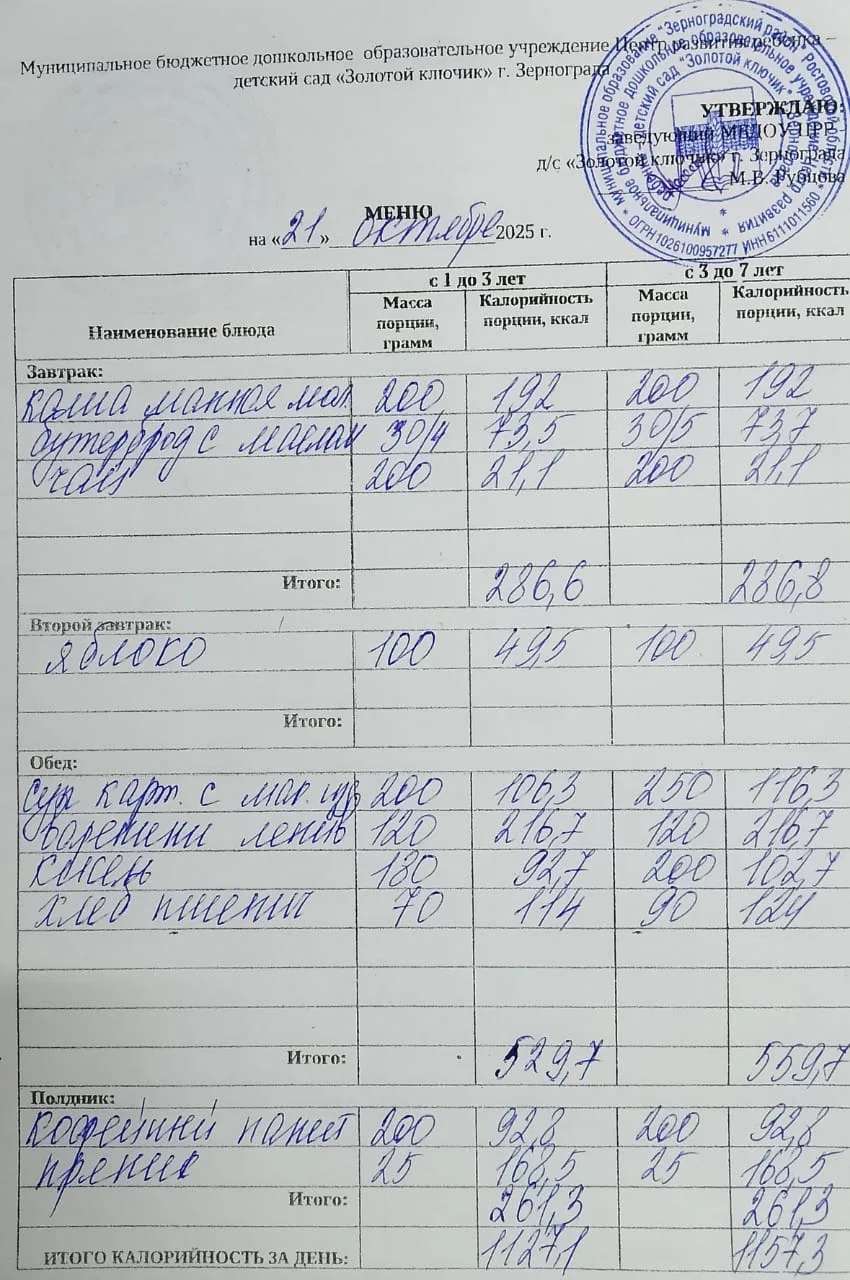 Муниципальное бюджетное дошкольное образовательное учреждение Центр развития ребёнка –
детский сад «Золотой ключик» г. Зернограда
УТВЕРЖДАЮ:
заведующий МБДОУ ЦРР –
д/с «Золотой ключик» г. Зернограда
М.В. Рубцова
* ОГРН1026100957277 ИНН6111011560 *
МЕНЮ
на «21» октября 2025 г.
Наименование блюда с 1 до 3 лет с 3 до 7 лет
Масса порции, грамм Калорийность порции, ккал Масса порции, грамм Калорийность порции, ккал
Завтрак:
каша манная мол. 200 192 200 192
бутерброд с маслом 30/4 73,5 30/5 73,7
чай 200 21,1 200 21,1
Итого: 286,6 286,8
Второй завтрак:
яблоко 100 49,5 100 49,5
Итого:
Обед:
суп карт. с мак. изд 200 106,3 250 116,3
вареники ленив 120 216,7 120 216,7
кисель 180 92,7 200 102,7
хлеб пшенич 70 114 90 124
Итого: 529,7 559,7
Полдник:
кофейный напит 200 92,8 200 92,8
пряник 25 168,5 25 168,5
Итого: 261,3 261,3
ИТОГО КАЛОРИЙНОСТЬ ЗА ДЕНЬ: 1127,1 1157,3